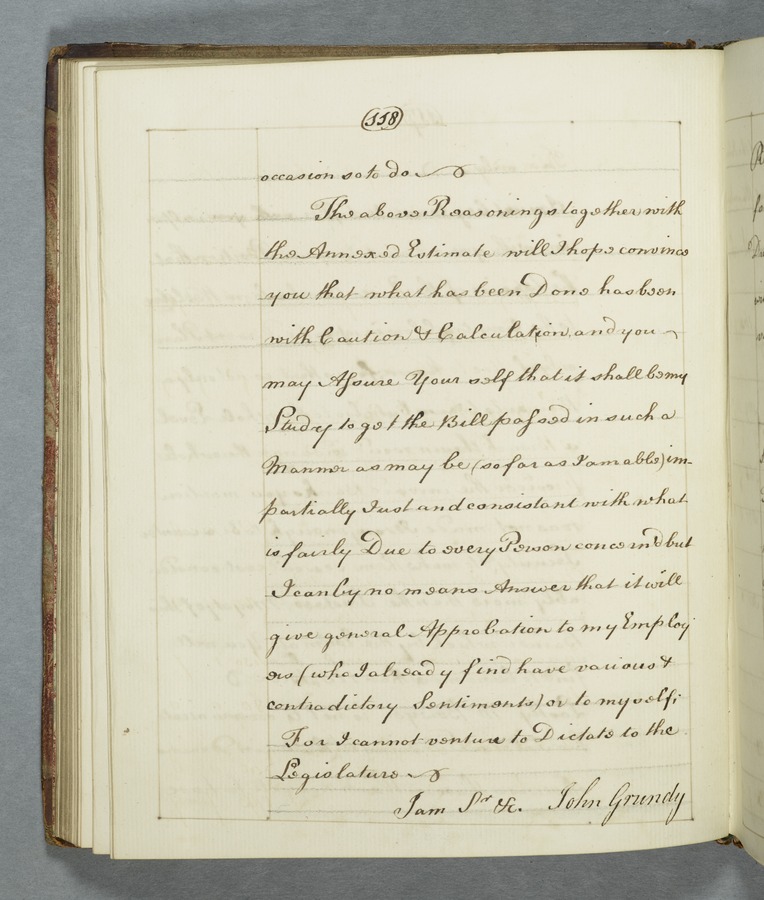 118
occasion so to do
The above Reasonings together with
the Annexed Estimate will I hope convince
you that what has been Done has been
with Caution & Calculation, and you
may Assure Your self that it shall be my
Study to get the Bill passed in such a
Manner as may be (so far as I am able) im-
partially Just and consistant with what
is fairly Due to every Person concern'd but
I can by no means Answer that it will
give general Approbation to my Employ
ers (who I already find have various &
contradictory Sentiments) or to my self;
For I cannot venture to Dictate to the
Legislature
I am Sr. &c. John Grundy